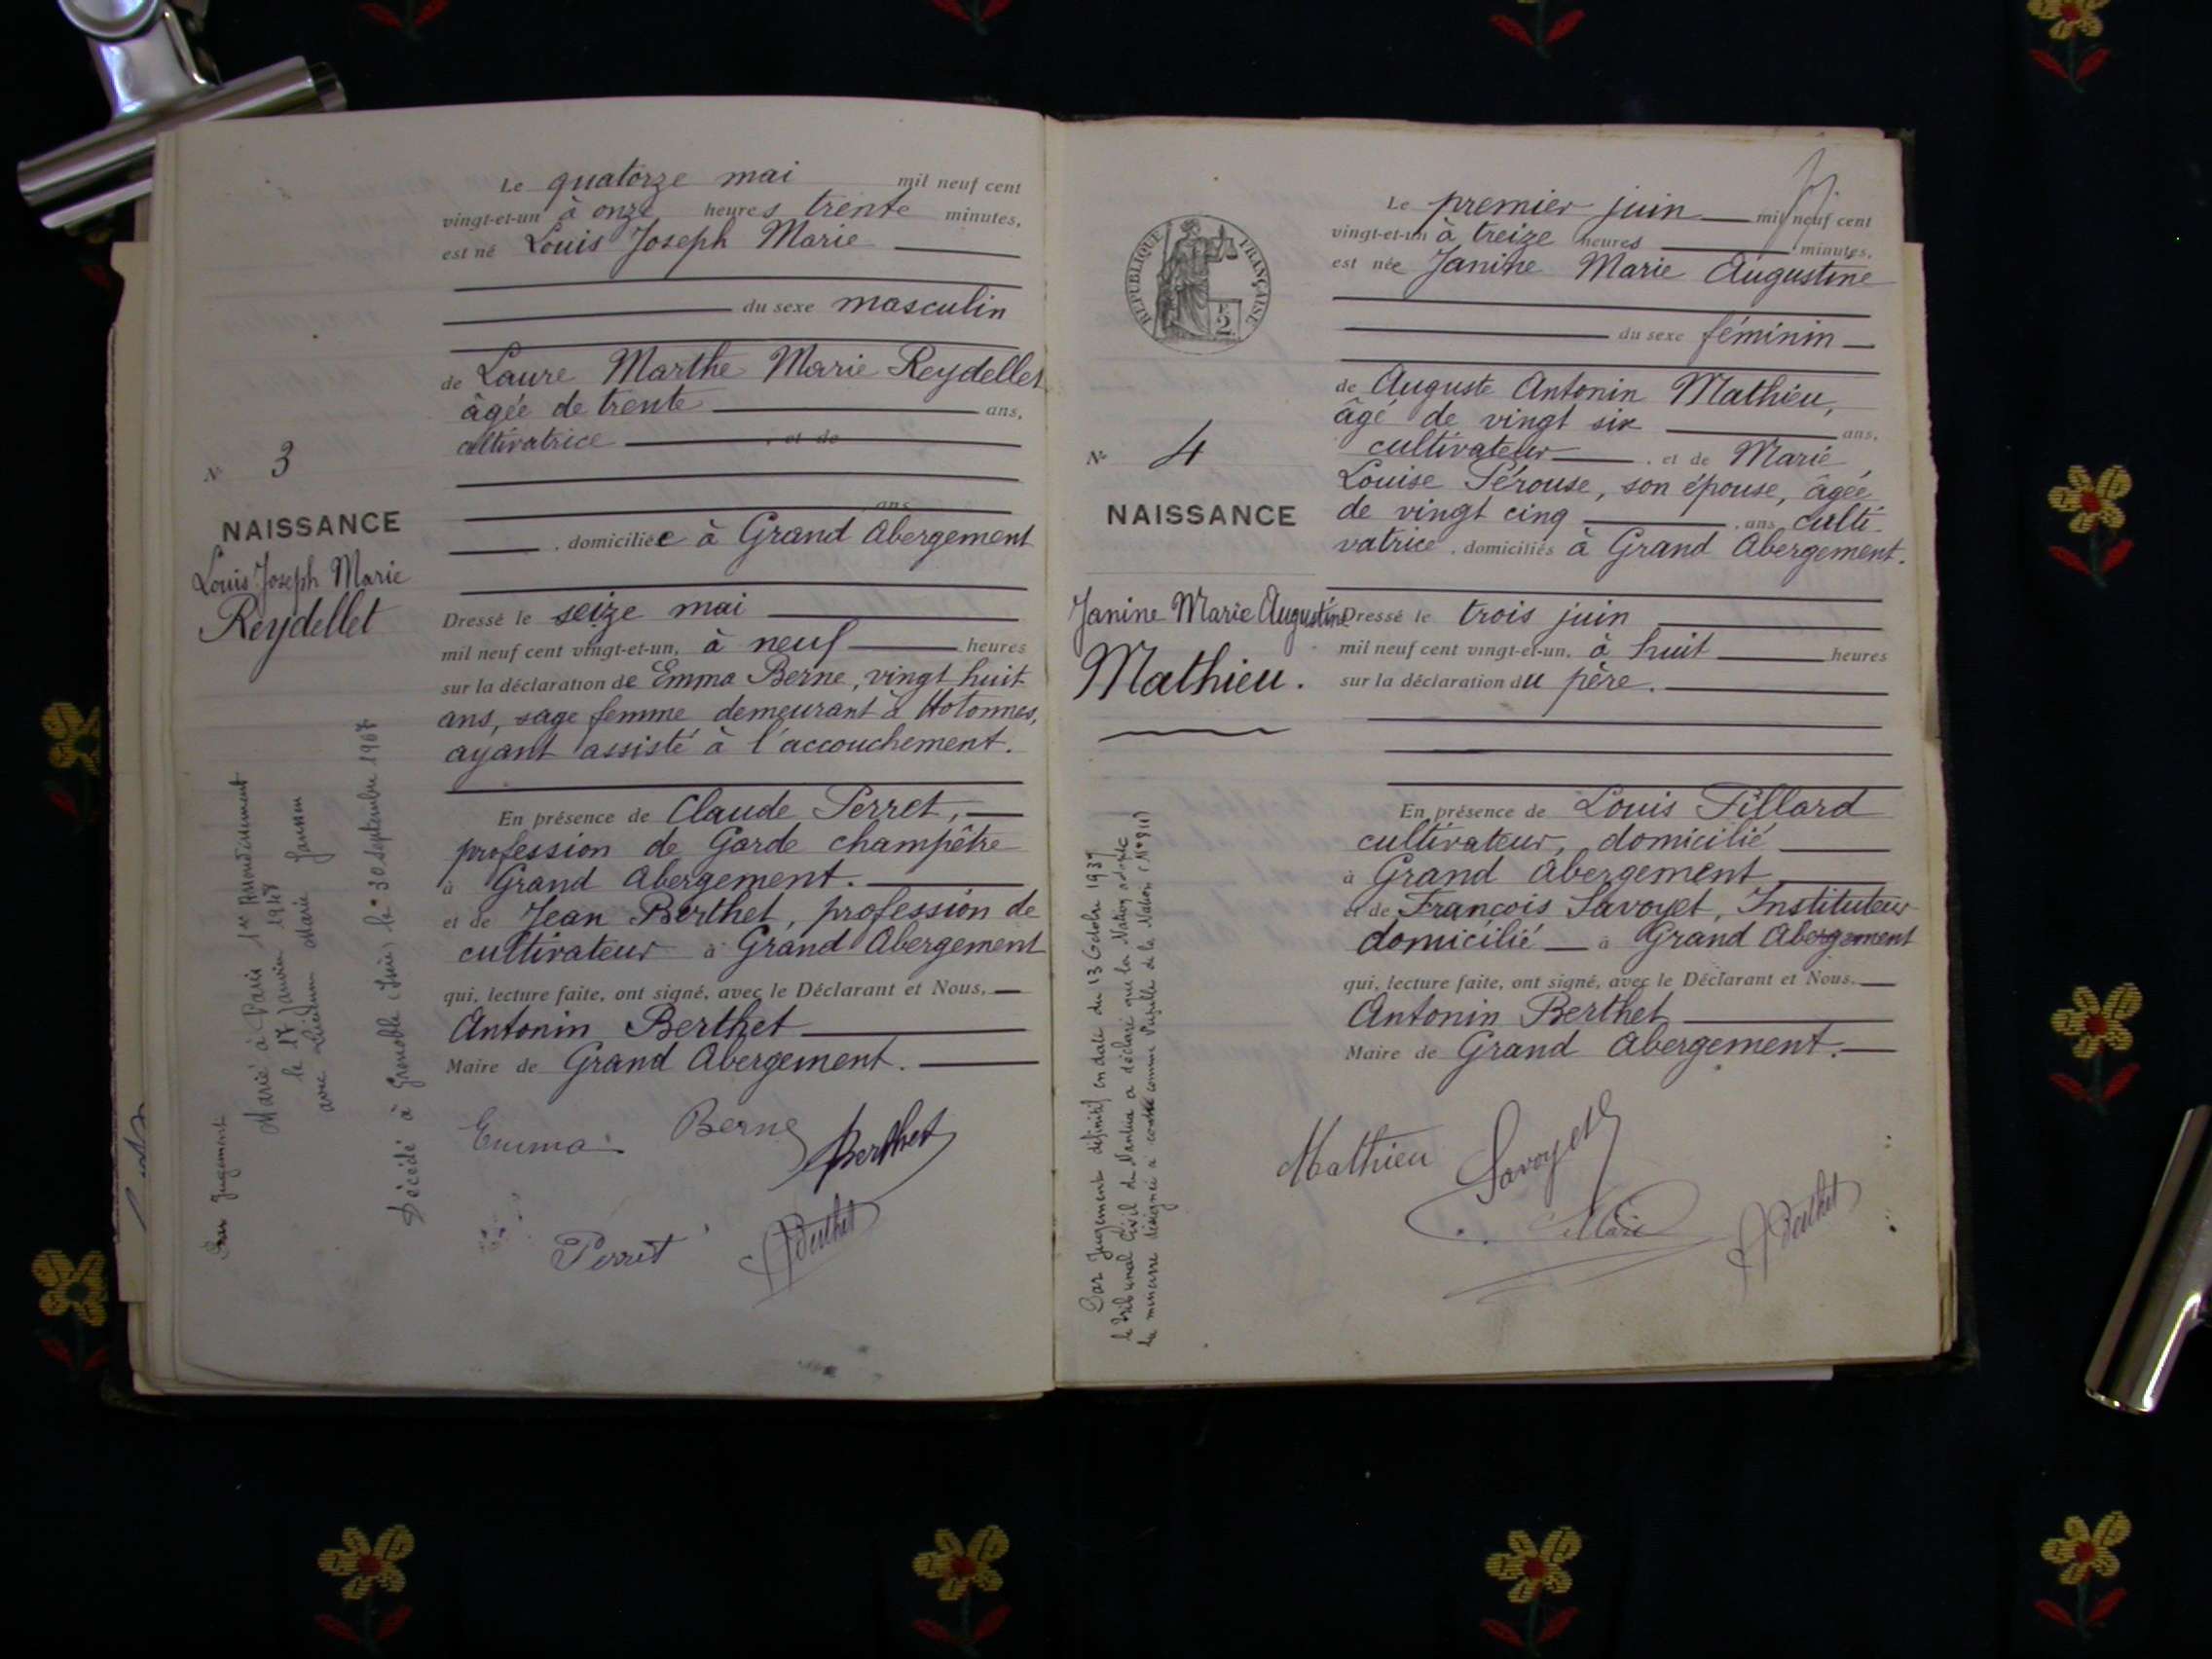 Le quatorze mai mil neuf cent
vingt-et-un à onze heures trente minutes,
est né Louis Joseph Marie
du sexe masculin
de Laure Marthe Marie Reydellet
âgée de trente ans,
cultivatrice , et de
ans
, domiciliée à Grand Abergement
Dressé le seize mai
mil neuf cent vingt-et-un, à neuf heures
sur la déclaration de Emma Berne, vingt huit
ans, sage femme demeurant à Hotonnes,
ayant assisté à l'accouchement.
En présence de Claude Perret,
profession de Garde champêtre
à Grand Abergement.
et de Jean Berthet, profession de
cultivateur à Grand Abergement
qui, lecture faite, ont signé, avec le Déclarant et Nous,
Antonin Berthet
Maire de Grand Abergement.
Emma Berne
Berthet
Perret
A Berthet
N° 3
NAISSANCE
Louis Joseph Marie
Reydellet
Par Jugement
Marié à Paris 1er Arrondissement
le 17 Janvier 1948
avec Marie Janssen
Décédé à Grenoble (Isère) le 30 septembre 1967
RÉPUBLIQUE FRANÇAISE
2
N° 4
NAISSANCE
Janine Marie Augustine
Mathieu.
Par Jugement définitif en date du 13 Octobre 1937
le Tribunal Civil de Nantua a déclaré que la Nation adopte
la mineure désignée ci contre comme Pupille de la Nation (N° 9 (1)
Le premier juin mil neuf cent
vingt-et-un à treize heures minutes,
est née Janine Marie Augustine
du sexe féminin
de Auguste Antonin Mathieu,
âgé de vingt six ans,
cultivateur , et de Marie
Louise Pérouse, son épouse, âgée
de vingt cinq , ans culti-
vatrice , domiciliés à Grand Abergement.
Dressé le trois juin
mil neuf cent vingt-et-un, à huit heures
sur la déclaration du père.
En présence de Louis Pillard
cultivateur, domicilié
à Grand Abergement
et de François Savoyet, Instituteur
domicilié à Grand Abergement
qui, lecture faite, ont signé, avec le Déclarant et Nous,
Antonin Berthet
Maire de Grand Abergement.
Mathieu
Savoyet
A Berthet